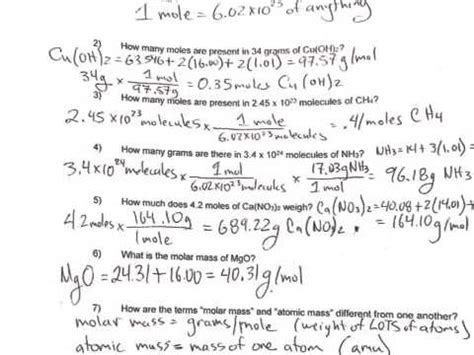 1 mole = 6.02x10²³ of anything
2) How many moles are present in 34 grams of Cu(OH)₂?
Cu(OH)₂ = 63.546 + 2(16.00) + 2(1.01) = 97.57 g/mol
34g x 1 mol / 97.57g = 0.35 moles Cu(OH)₂
3) How many moles are present in 2.45 x 10²³ molecules of CH₄?
2.45 x 10²³ molecules x 1 mole / 6.02x10²³ molecules = .41 moles CH₄
4) How many grams are there in 3.4 x 10²⁴ molecules of NH₃? NH₃ = 14 + 3(1.01) =
3.4x10²⁴ molecules x 1 mol / 6.02x10²³ molecules x 17.03g NH₃ / 1 mol = 96.18g NH₃
5) How much does 4.2 moles of Ca(NO₃)₂ weigh? Ca(NO₃)₂ = 40.08 + 2(14.01) +
4.2 moles x 164.10g / 1 mole = 689.22g Ca(NO₃)₂ = 164.10 g/
6) What is the molar mass of MgO?
MgO = 24.31 + 16.00 = 40.31 g/mol
7) How are the terms "molar mass" and "atomic mass" different from one another?
molar mass = grams/mole (weight of LOTS of atoms)
atomic mass = mass of one atom (amu)